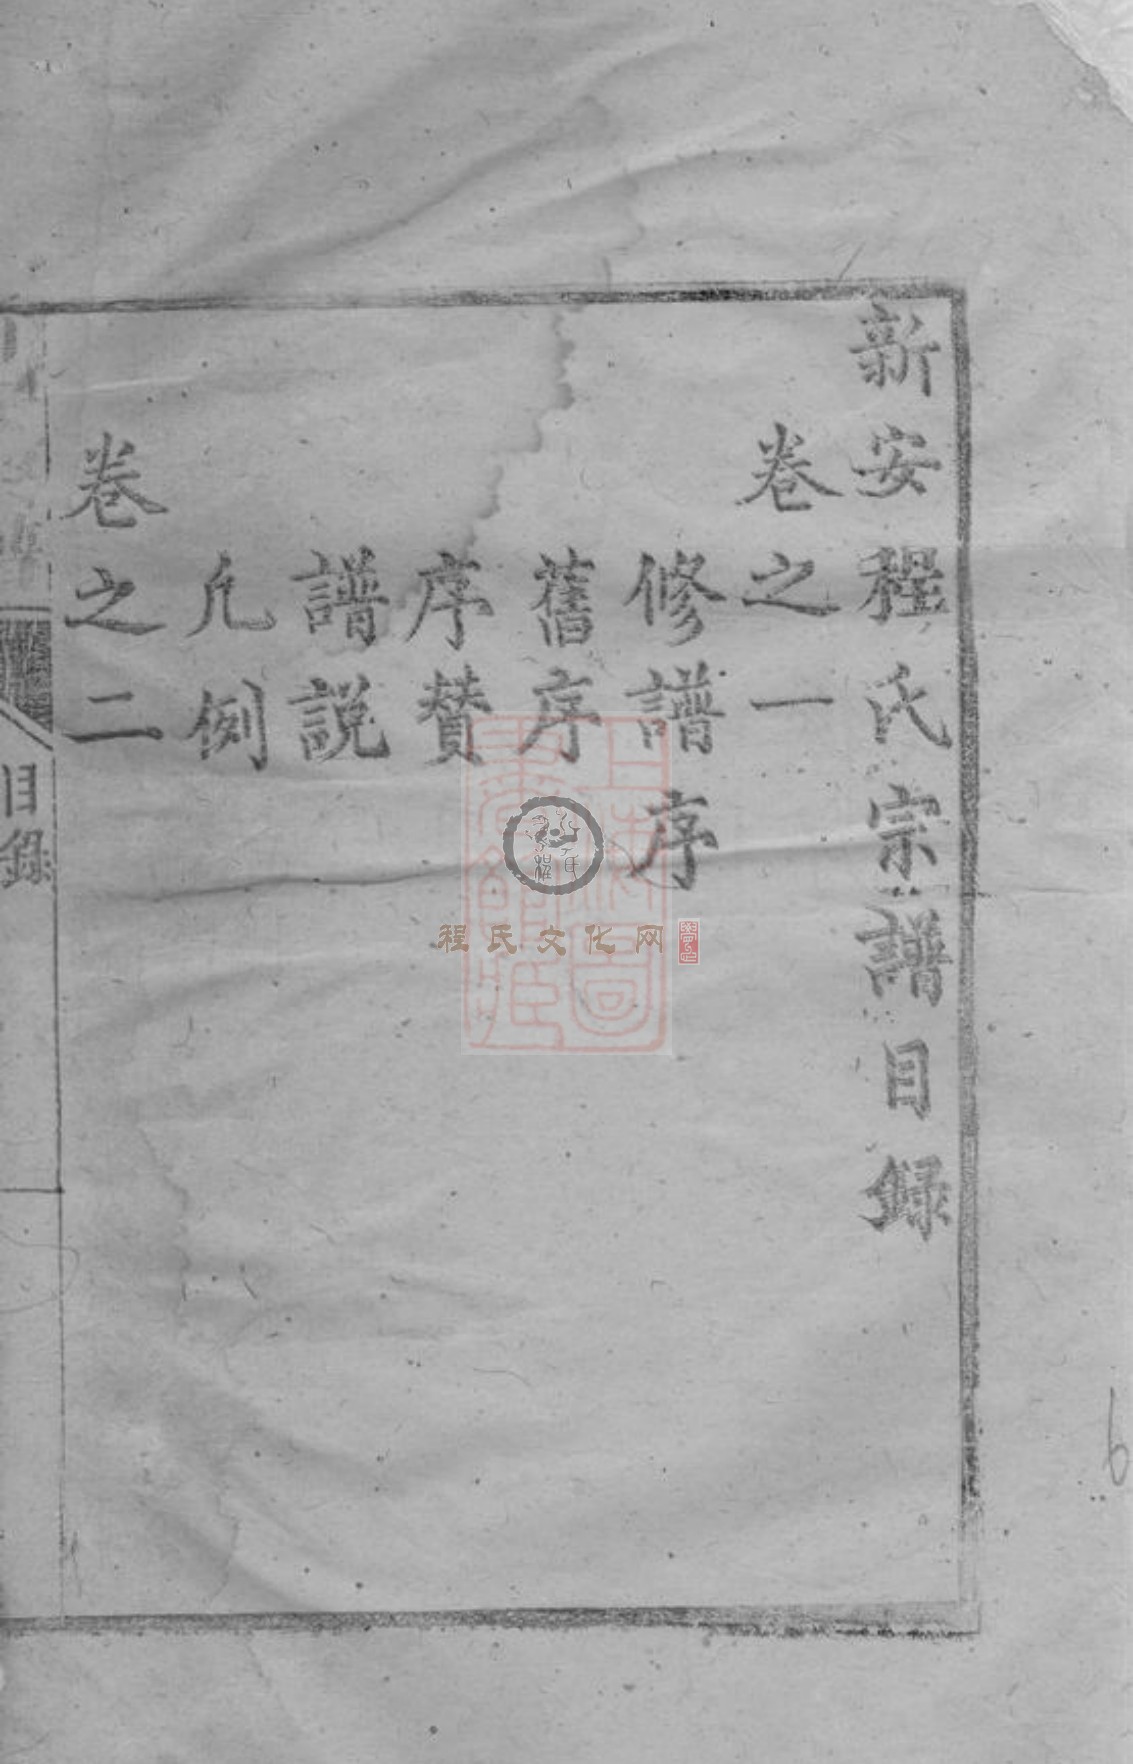 新安程氏宗譜目錄
卷之一
修譜序
舊序
序贊
譜説
凡例
卷之二
目錄
程氏文化网
6